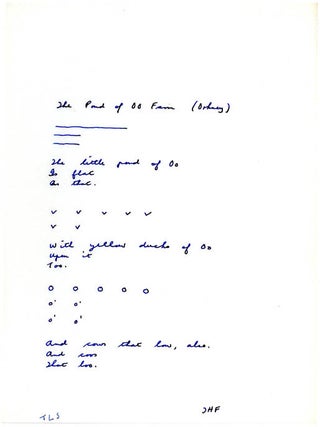 The Pond of OO Farm (Orkney)
The little pond of Oo
Is flat
As that.
v v v v v
v v
With yellow ducks of Oo
Upon it
Too.
o o o o o
o' o'
o' o'
And cows that low, also.
And coos
That loo.
JHF
TLS